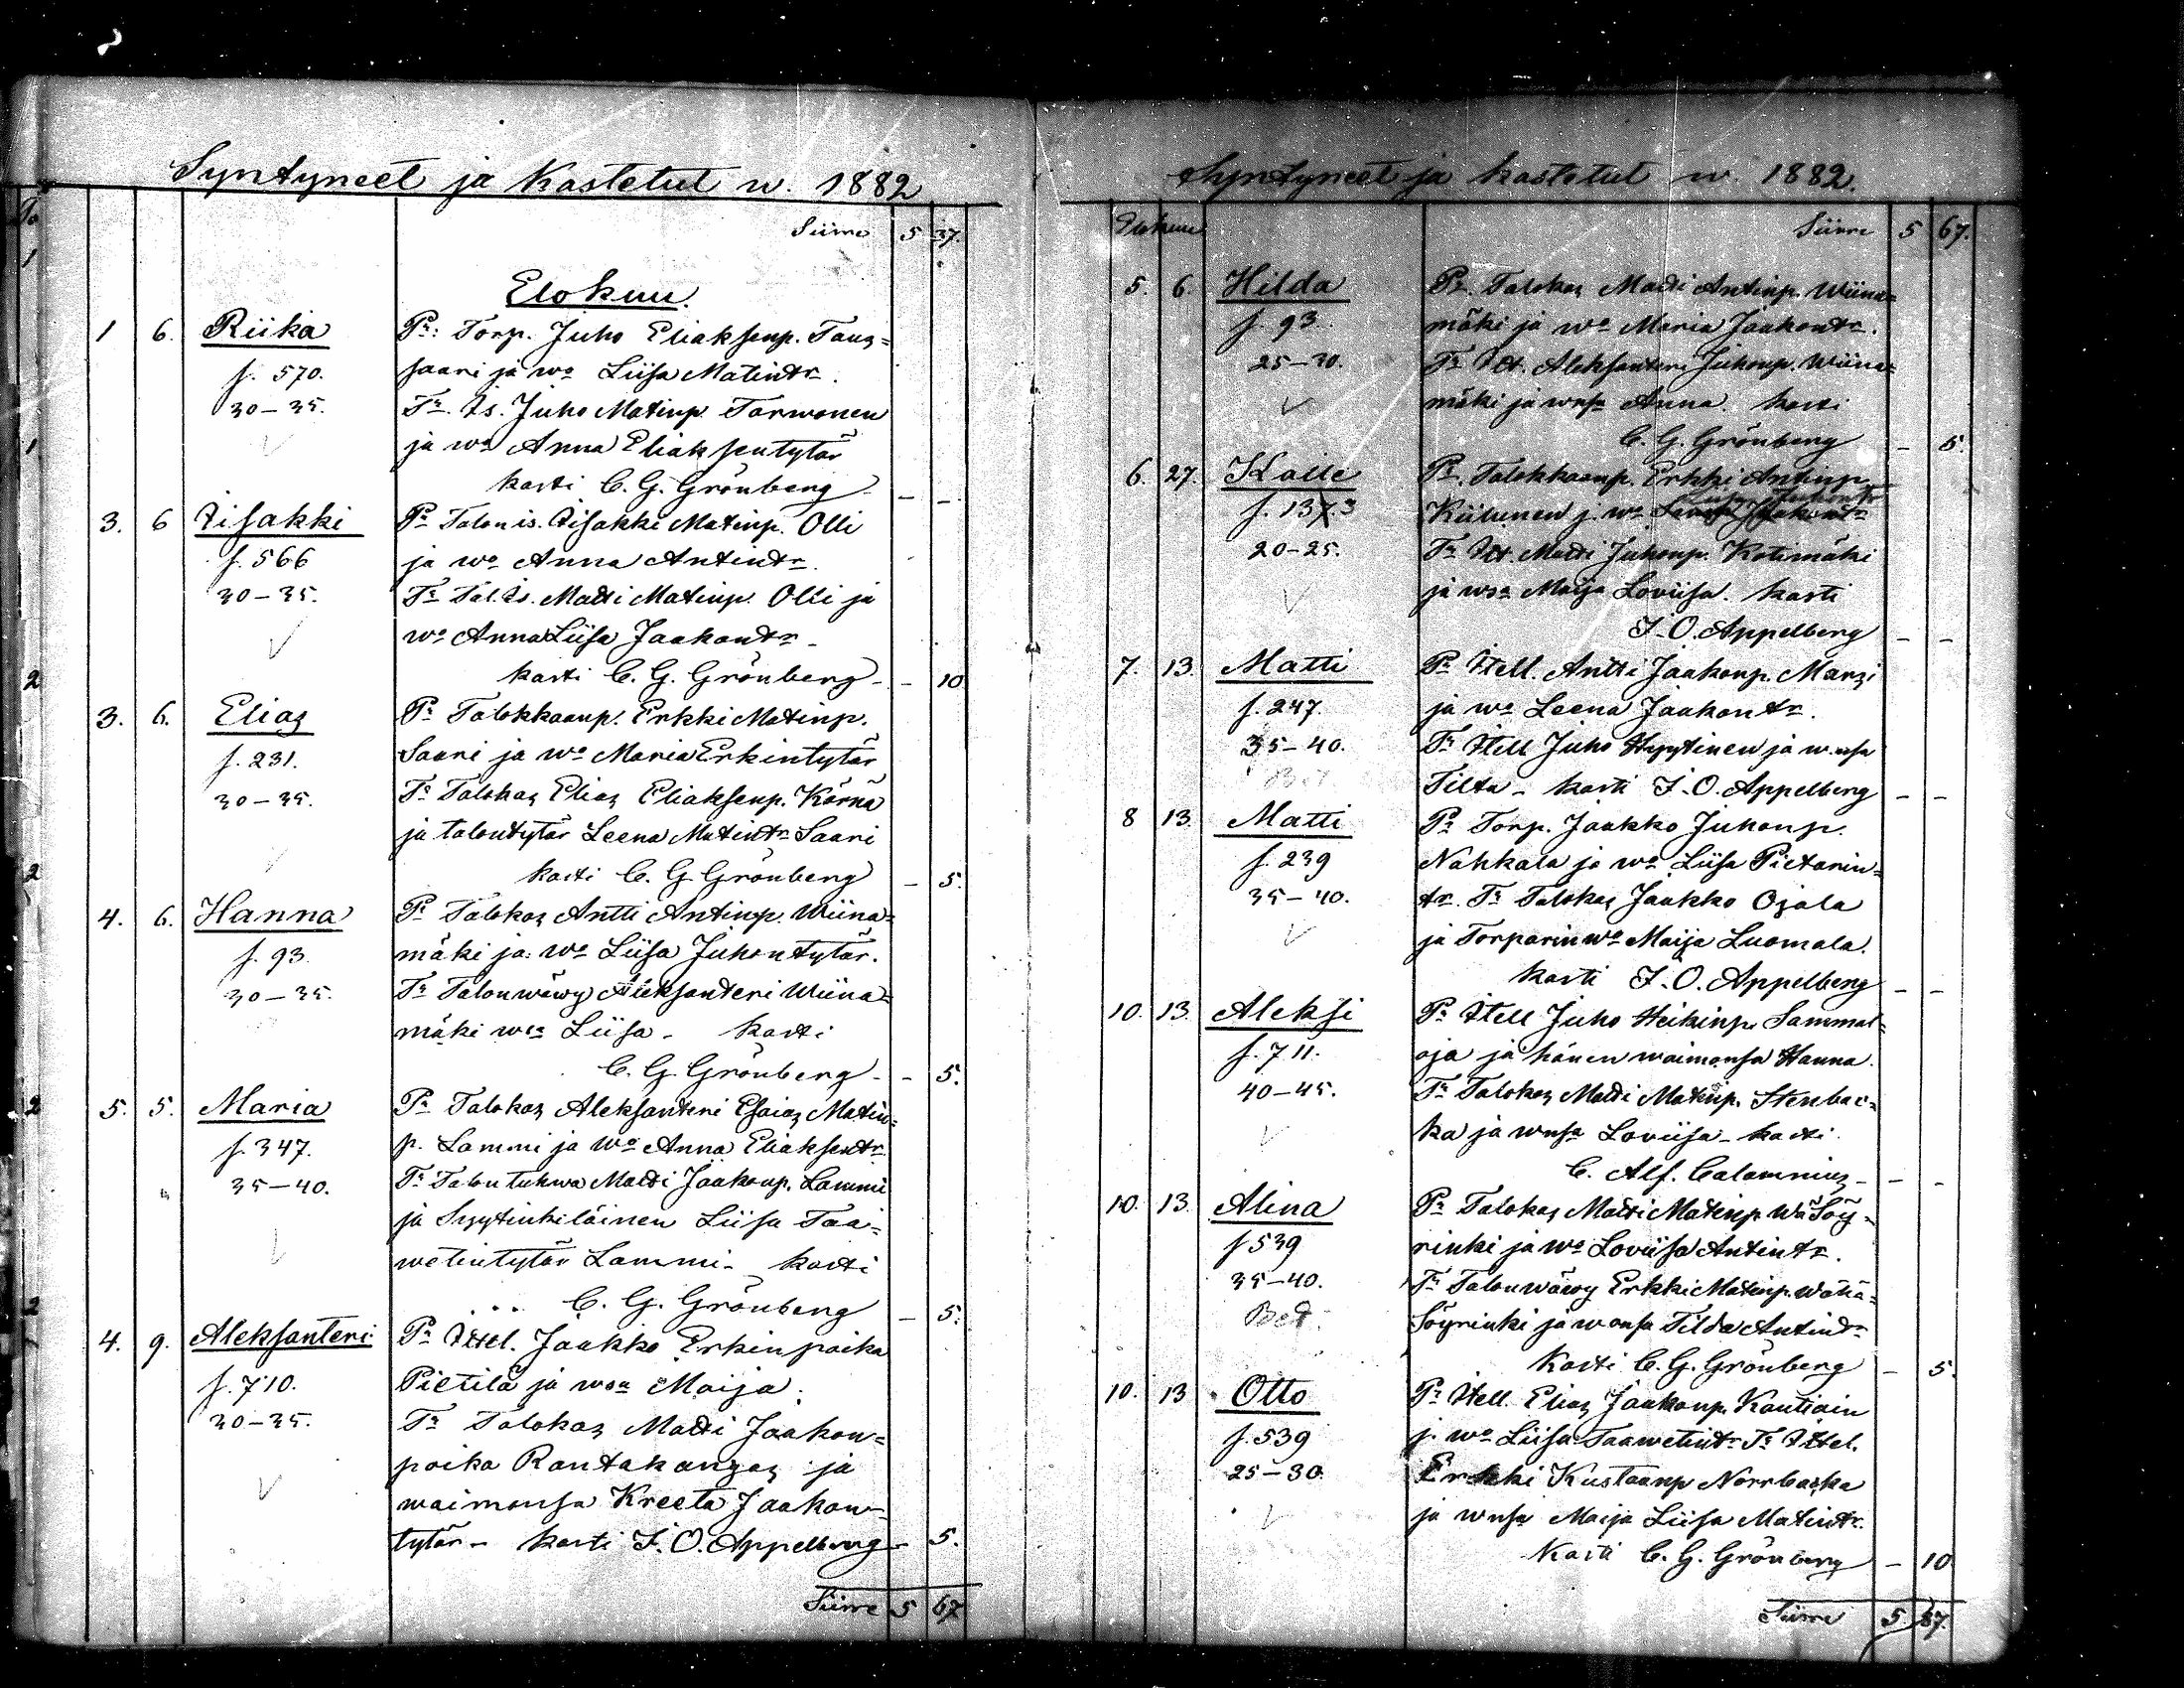 Syntyneet ja Kastetut w. 1882
Siirre 5 37.
Elokuu.
1 6. Riika Pr: Torp. Juho Eliaksenp. Taus=
f. 570. saari ja wo Liisa Matintr.
30–35. Tr. Is. Juho Matinp. Tarwonen
ja wo Anna Eliaksentytär
kasti C. G. Grönberg – –
3. 6 Iisakki Pr Talonis. Iisakki Matinp. Olli
f. 566 ja wo Anna Antintr.
30–35. Tr Tal. Is. Matti Matinp. Olli ja
wo Anna Liisa Jaakontr –
kasti C. G. Grönberg – – 10
3. 6. Elias Pr Talokkaanp. Erkki Matinp.
f. 231. Saari ja wo Maria Erkintytär
30–35. Tr Talokas Elias Eliaksenp. Körnä
ja talontytär Leena Matintr Saari
kasti C. G. Grönberg – 5.
4. 6. Hanna Pr Talokas Antti Antinp. Wiina=
f. 93. mäki ja wo Liisa Juhontytär.
30–35. Tr Talonwäwy Aleksanteri Wiina=
mäki wsa Liisa – kasti
C. G. Grönberg – – 5.
5. 5. Maria Pr Talokas Aleksanteri Esaias Matin=
f. 347. p. Lammi ja wo Anna Eliaksentr
35–40. Tr Talontuhwa Matti Jaakonp. Lammi
ja Syytinkiläinen Liisa Taa=
wetintytär Lammi – kasti
C. G. Grönberg – 5.
4. 9. Aleksanteri Pr Ittel. Jaakko Erkinpoika
f. 710. Pietilä ja wsa Maija.
30–35. Tr Talokas Matti Jaakon=
poika Rantakangas ja
waimonsa Kreeta Jaakon=
tytär – kasti J. O. Appelberg – 5.
Siirre 5 67
Syntyneet ja kastetut w. 1882.
Elokuu Siirre 5 67.
5. 6. Hilda Pr. Talokas Matti Antinp. Wiina=
f. 93. mäki ja wo Maria Jaakontr.
25–30. Tr Itt. Aleksanteri Juhonp. Wiina=
mäki ja wnsa Anna. kasti
C. G. Grönberg – 5.
6. 27. Kalle Pr. Talokkaanp. Erkki Antinp.
f. 137.3 Kiilunen j. wo Liisa Jaakontr
20–25. Tr Itt. Matti Juhonp. Kotimäki
ja wsa Maija Loviisa. kasti
J. O. Appelberg – –
7. 13. Matti Pr Itell. Antti Jaakonp. Marsi
f. 247. ja wo Leena Jaakontr.
35–40. Tr Itell Juho Hyytinen ja w.nsa
Tilta – kasti J. O. Appelberg – –
8 13. Matti Pr Torp. Jaakko Juhonp.
f. 239 Nahkala ja wo Liisa Pietarin=
35–40. tr. Tr Talokas Jaakko Ojala
ja Torparin wo Maija Luomala.
kasti J. O. Appelberg – –
10. 13. Aleksi Pr Itell Juho Heikinp. Sammal=
f. 711. oja ja hänen waimonsa Hanna.
40–45. Tr Talokas Matti Matinp. Stenbac=
ka ja wnsa Loviisa – kasti
C. Alf. Calamnius – – –
10. 13. Alina Pr Talokas Matti Matinp Wä Söy=
f 539 rinki ja wo Loviisa Antintr.
35–40. Tr Talonwäwy Erkki Matinp. Wähä=
Bet. Söyrinki ja wonsa Tilda Antintr
Kasti C. G. Grönberg – 5.
10. 13 Otto Pr Itell. Elias Jaakonp. Kantiain
f. 539 j. wo Liisa Taawetintr Tr Ittel.
25–30. Erkki Kustaanp Norrbacka
ja wnsa Maija Liisa Matintr.
Kasti C. G. Grönberg – 10
Siirre 5. 87.